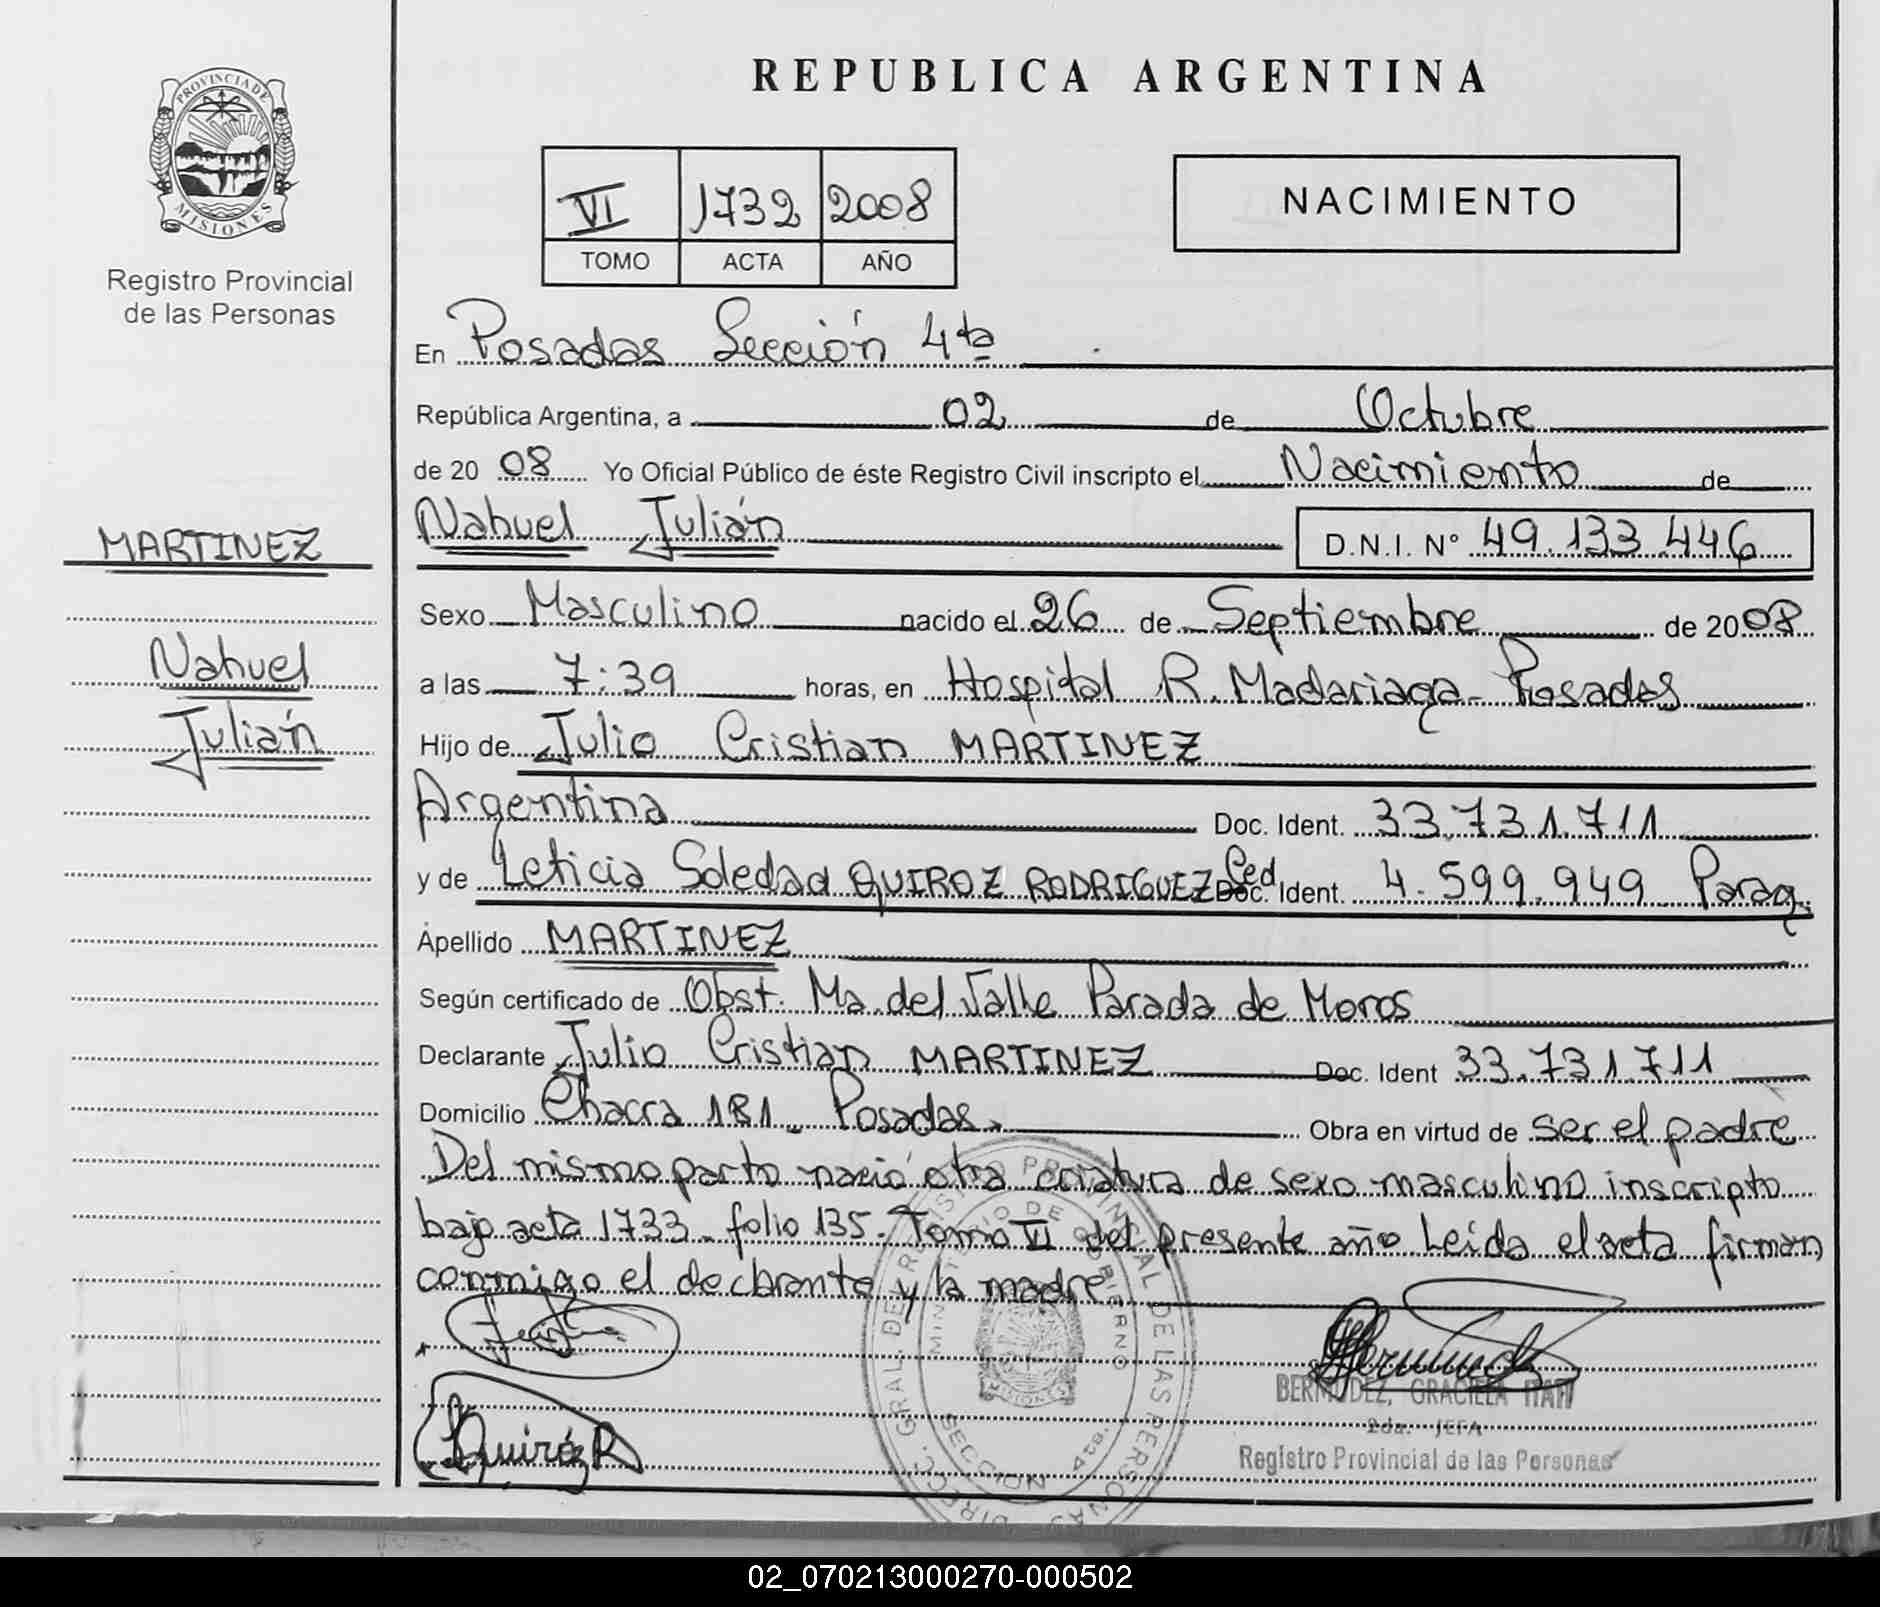 REPUBLICA ARGENTINA
PROVINCIA DE MISIONES
Registro Provincial
de las Personas
VI 1732 2008
TOMO ACTA AÑO
NACIMIENTO
En Posadas Sección 4ta
República Argentina, a 02 de Octubre
de 20 08 Yo Oficial Público de éste Registro Civil inscripto el Nacimiento de
Nahuel Julián D.N.I. N° 49.133.446
MARTINEZ
Nahuel
Julián
Sexo Masculino nacido el 26 de Septiembre de 2008
a las 7:39 horas, en Hospital R. Madariaga - Posadas
Hijo de Julio Cristian MARTINEZ
Argentina Doc. Ident. 33.731.711
y de Leticia Soledad QUIROZ RODRIGUEZ Ced Doc. Ident. 4.599.949 Parag.
Apellido MARTINEZ
Según certificado de Obst. Ma. del Valle Parada de Moros
Declarante Julio Cristian MARTINEZ Doc. Ident 33.731.711
Domicilio Chacra 181 - Posadas. Obra en virtud de ser el padre
Del mismo parto nació otra criatura de sexo masculino inscripto
bajo acta 1733 - folio 135 - Tomo VI del presente año Leída el acta firman
conmigo el declarante y la madre
Quiróz R
BERMUDEZ, GRACIELA ITATI
2da. JEFA
Registro Provincial de las Personas
DIRECC. GRAL. DEL REGISTRO PROVINCIAL DE LAS PERSONAS
MINISTERIO DE GOBIERNO
SECCION 4ta.
MISIONES
02_070213000270-000502